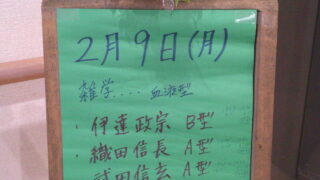 2月9日(月)
雑学.... 血液型
・伊達政宗 B型
・織田信長 A型
武田信玄 A型